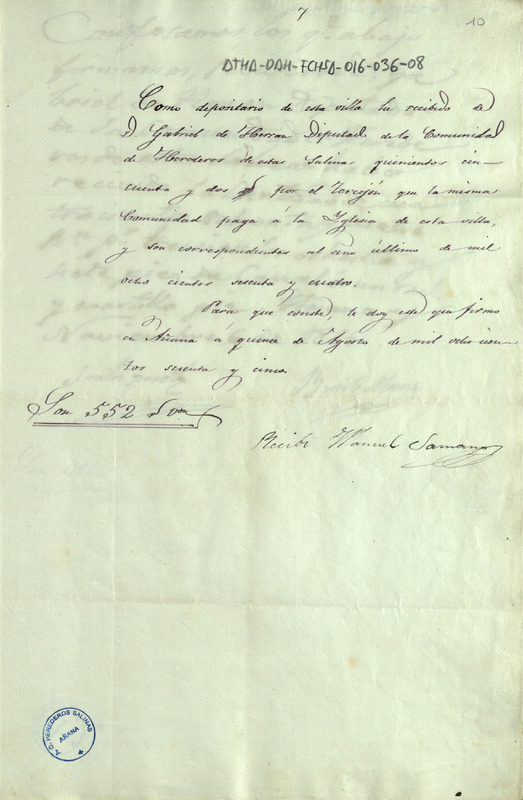 7
10
ATHA-DAH-FCHSA-016-036-08
Como depositario de esta villa he recibido de
D. Gabriel de Herran Diputado de la Comunidad
de Herederos de estas Salinas quinientos cin-
cuenta y dos rs por el torrejon que la misma
Comunidad paga á la Yglesia de esta villa,
y son correspondientes al año último de mil
ocho cientos sesenta y cuatro.
Para que conste, le doy este que firmo
en Añana á quince de Agosto de mil ocho cien
tos sesenta y cinco
Son 552 rs von
Recibi Manuel Samano
A. C. HEREDEROS SALINAS
AÑANA